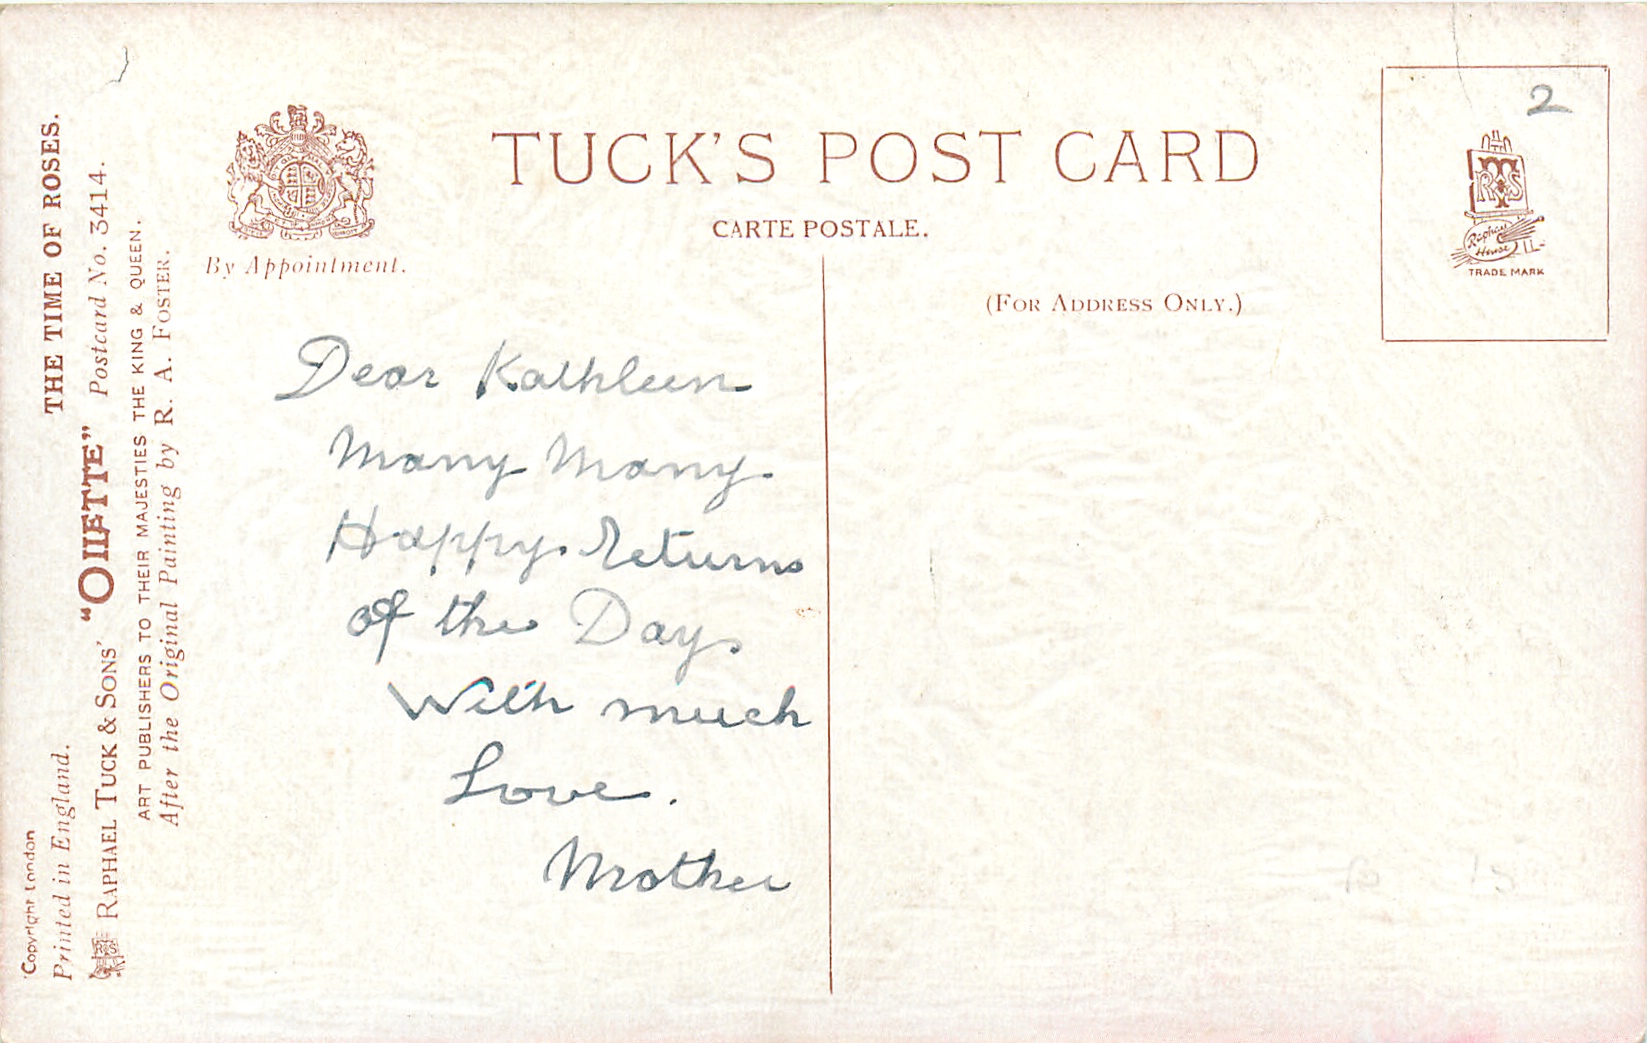 TUCK'S POST CARD
CARTE POSTALE.
By Appointment.
(FOR ADDRESS ONLY.)
2
RTS
Raphael
House
TRADE MARK
Dear Kathleen
Many Many
Happy Returns
of the Day.
With much
Love.
Mother
THE TIME OF ROSES.
"OILETTE" Postcard No. 3414.
Copyright London
Printed in England.
RAPHAEL TUCK & SONS'
ART PUBLISHERS TO THEIR MAJESTIES THE KING & QUEEN.
After the Original Painting by R. A. FOSTER.